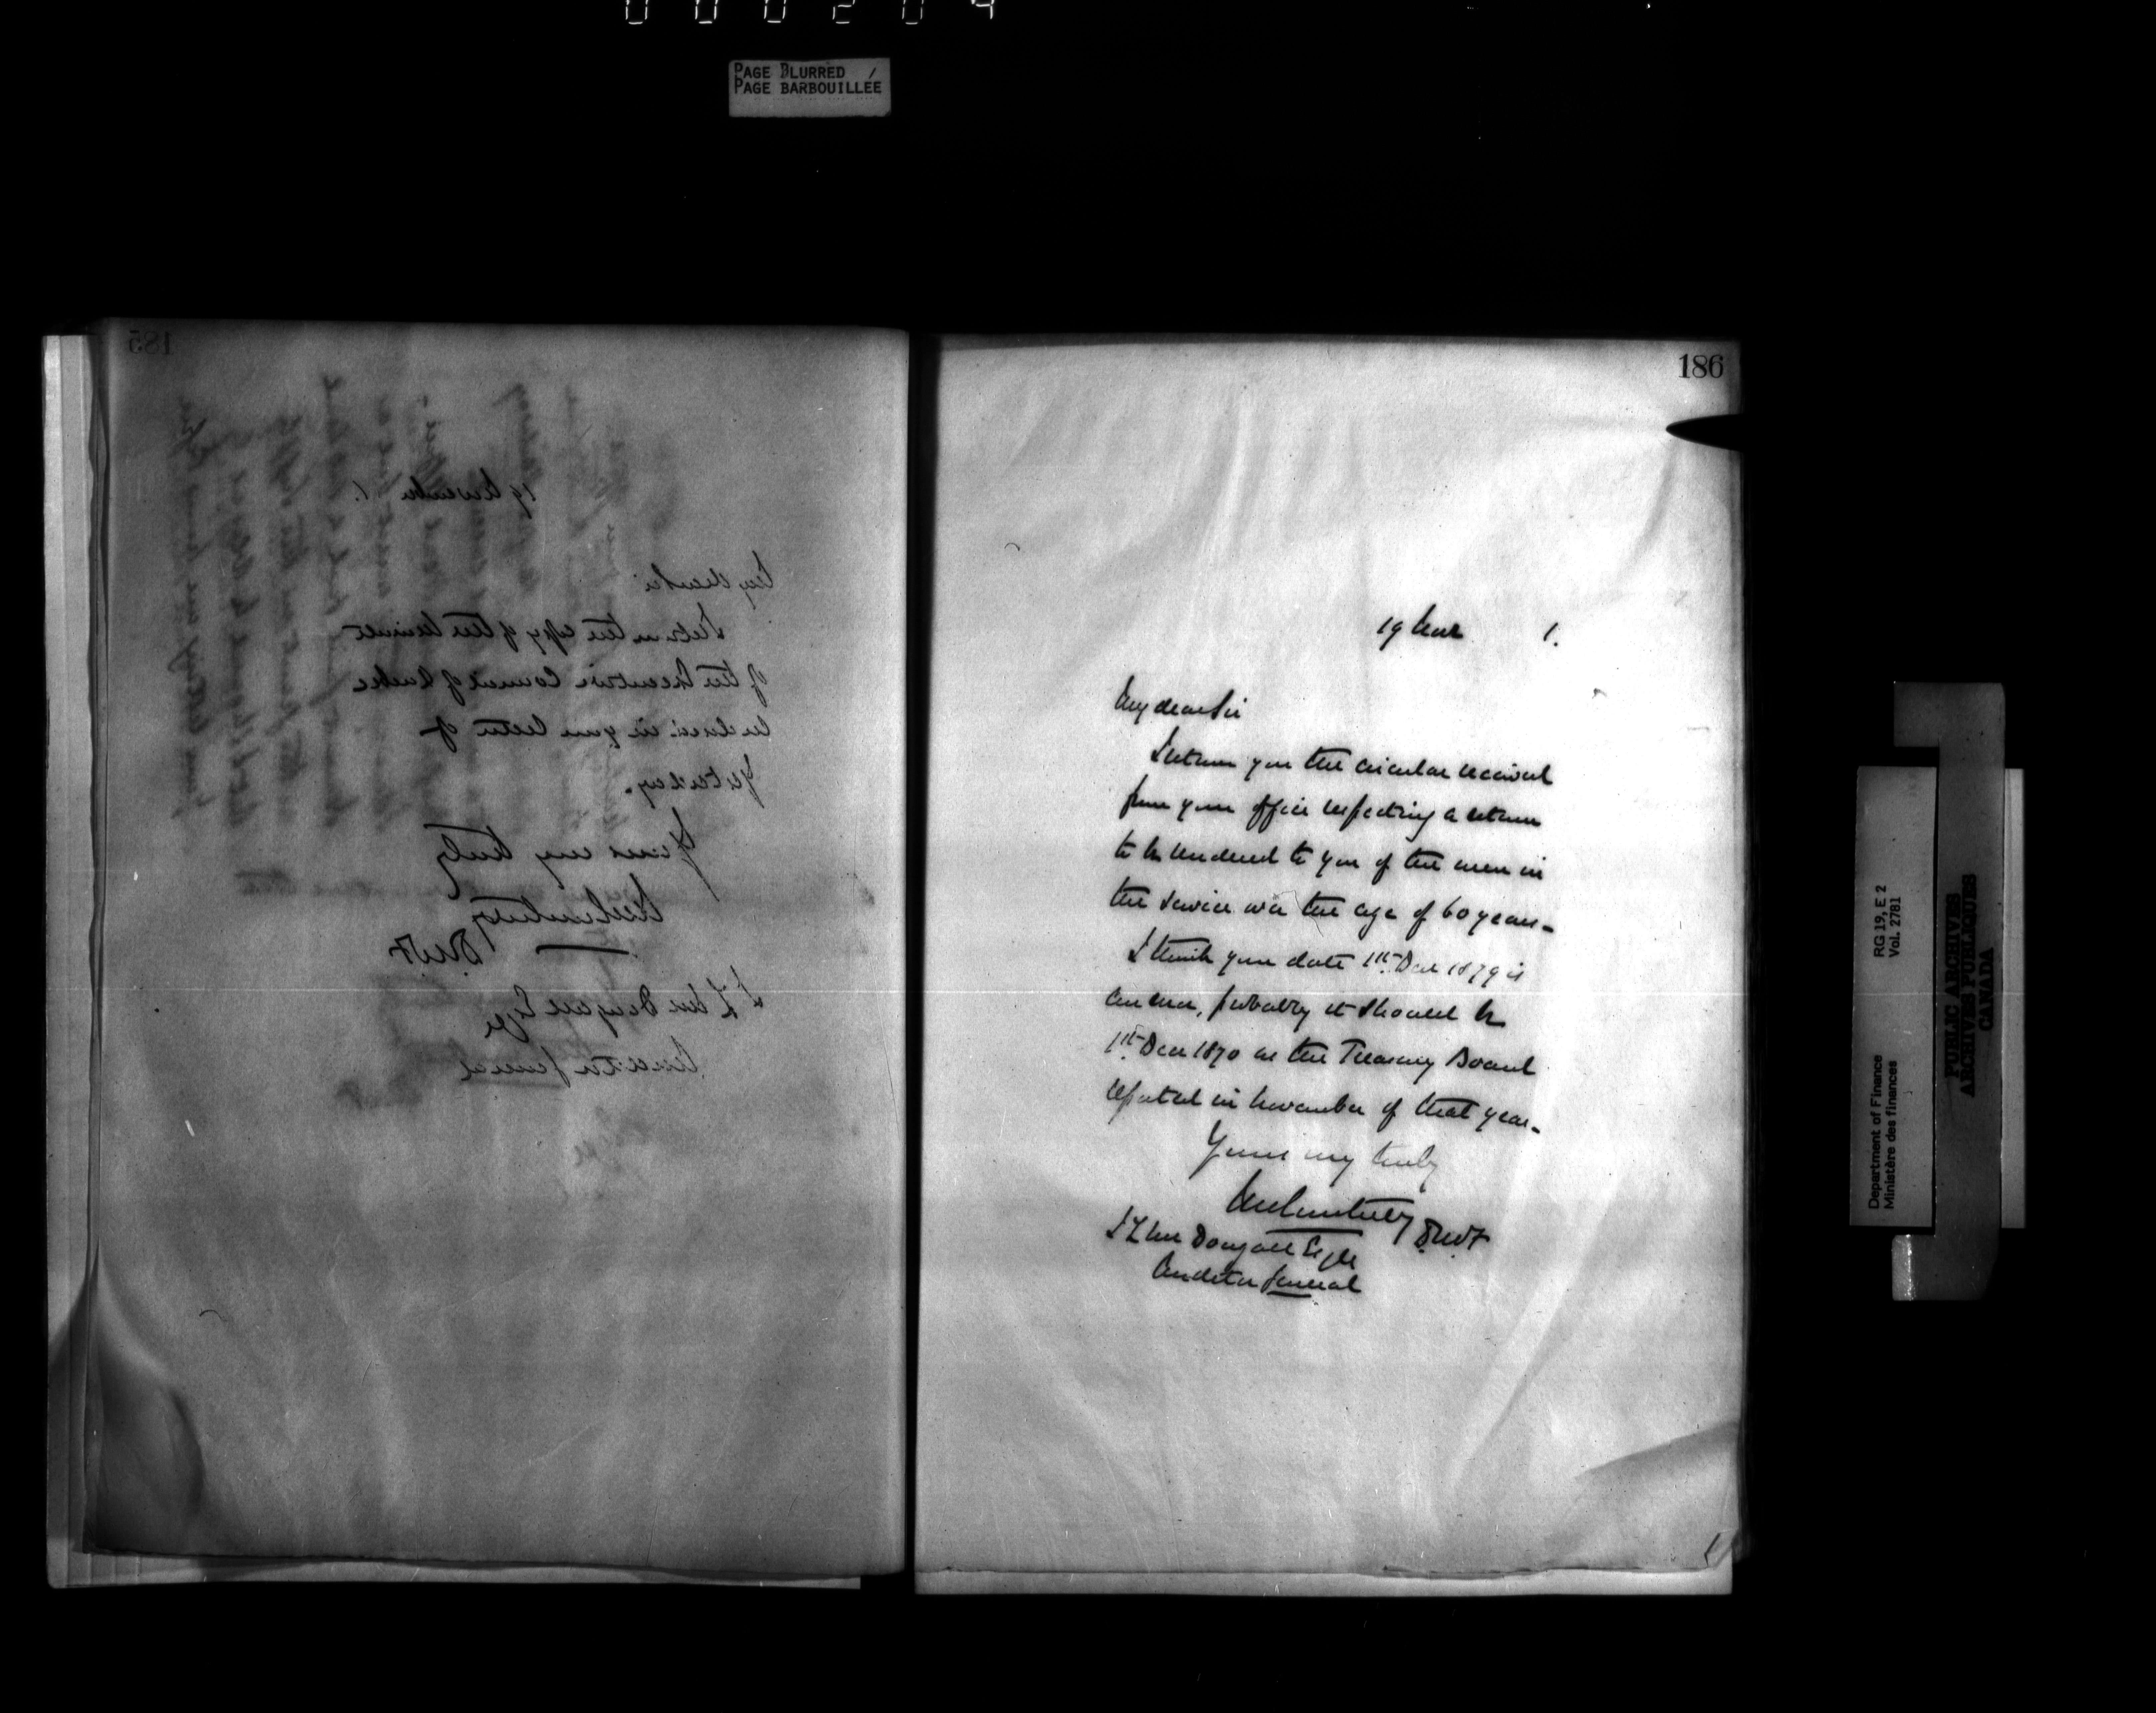 000204
PAGE BLURRED
PAGE BARBOUILLÉE
185
19 November 1.
My dear Sir
I return the copy of the minutes
of the Executive Council of Quebec
enclosed in your letter of
yesterday.
Yours very truly
JMCourtney
DMF
J L McDougall Esqre
Auditor General
186
19 Nov 1.
My dear Sir
I return you the circular received
from your office respecting a return
to be rendered to you of the men in
the service over the age of 60 years-
I think your date 1st Dec 1879 is
an error, probably it should be
1st Dec 1870 as the Treasury Board
reported in November of that year-
Yours very truly
JMCourtney DMF
J L McDougall Esqre
Auditor General
Department of Finance
Ministère des finances
RG 19, E 2
Vol. 2781
PUBLIC ARCHIVES
ARCHIVES PUBLIQUES
CANADA